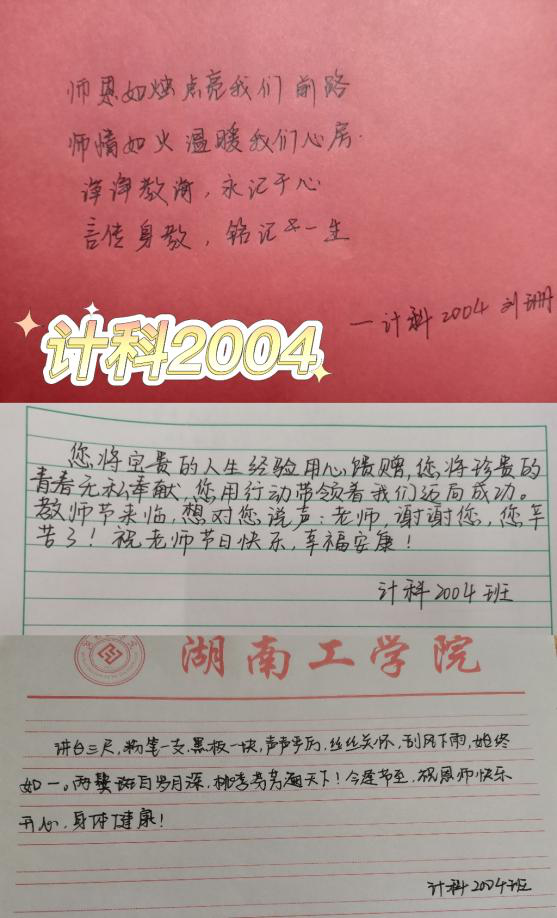 师恩如烛点亮我们前路
师情如火温暖我们心房.
谆谆教诲，永记于心
言传身教，铭记于一生
—计科2004 刘珊
计科2004
您将宝贵的人生经验用心馈赠，您将珍贵的
青春无私奉献，您用行动带领着我们迈向成功。
教师节来临，想对您说声：老师，谢谢您，您辛
苦了！祝老师节日快乐，幸福安康！
计科2004班
湖南工学院
讲台三尺，粉笔一支，黑板一块，声声严厉，丝丝关怀，刮风下雨，始终
如一。两鬓斑白岁月深，桃李芬芳满天下！今逢节至，祝恩师快乐
开心，身体健康！
计科2004班